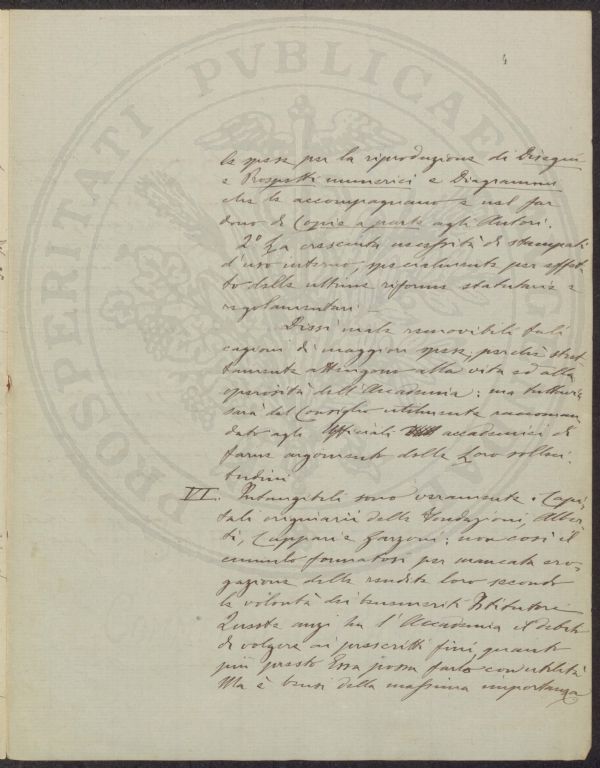 le spese per la riproduzione di Disegni
e Prospetti numerici e Diagrammi
che le accompagnano e nel far
dono di Copie a parte agli Autori.
2º La cresciuta necessità di stampati
d'uso interno, specialmente per effet-
to delle ultime riforme statutarie e
regolamentari.
Dissi male removibili tali
cagioni di maggiori spese, perchè stret-
tamente attengono alla vita ed alla
operosità dell'Accademia: ma tuttavia
sarà dal Consiglio utilmente raccoman-
dato agli Ufficiali accademici di
farne argomento delle Loro solleci-
tudini
VI. Intangibili sono veramente i Capi-
tali originarii delle Fondazioni, Alber-
ti, Cuppari e Zarzoni; non così il
cumulo formatosi per mancata ero-
gazione delle rendite loro secondo
le volontà dei benemeriti Istitutori
Queste anzi ha l'Accademia il debito
di volgere ai prescritti fini, quanto
più presto Essa possa farlo con utilità
Ma è bensì della massima importanza
PROSPERITATI PVBLICAE